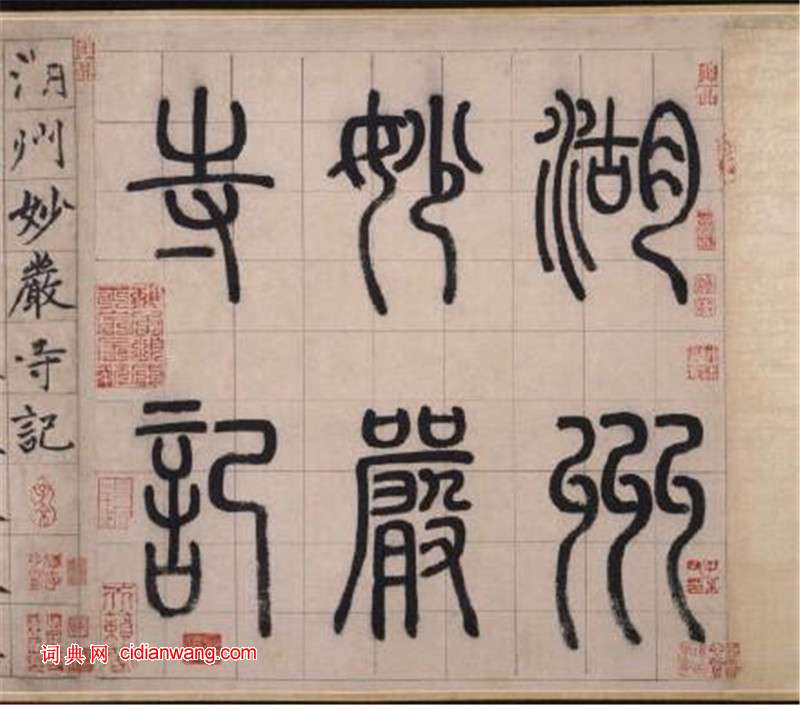 湖州
妙嚴
寺記
湖州妙嚴寺記
词典网 cidianwang.com